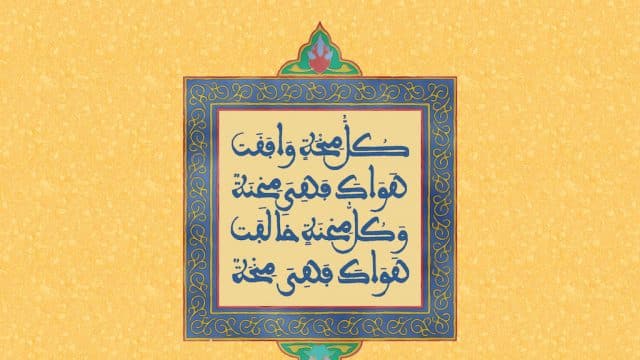 كُلُّ مِنحَةٍ وَافَقَت
هَوَاكَ فَهِيَ مِحنَة
وَكُلُّ مِحنَةٍ خَالَفَت
هَوَاكَ فَهِيَ مِنحَة